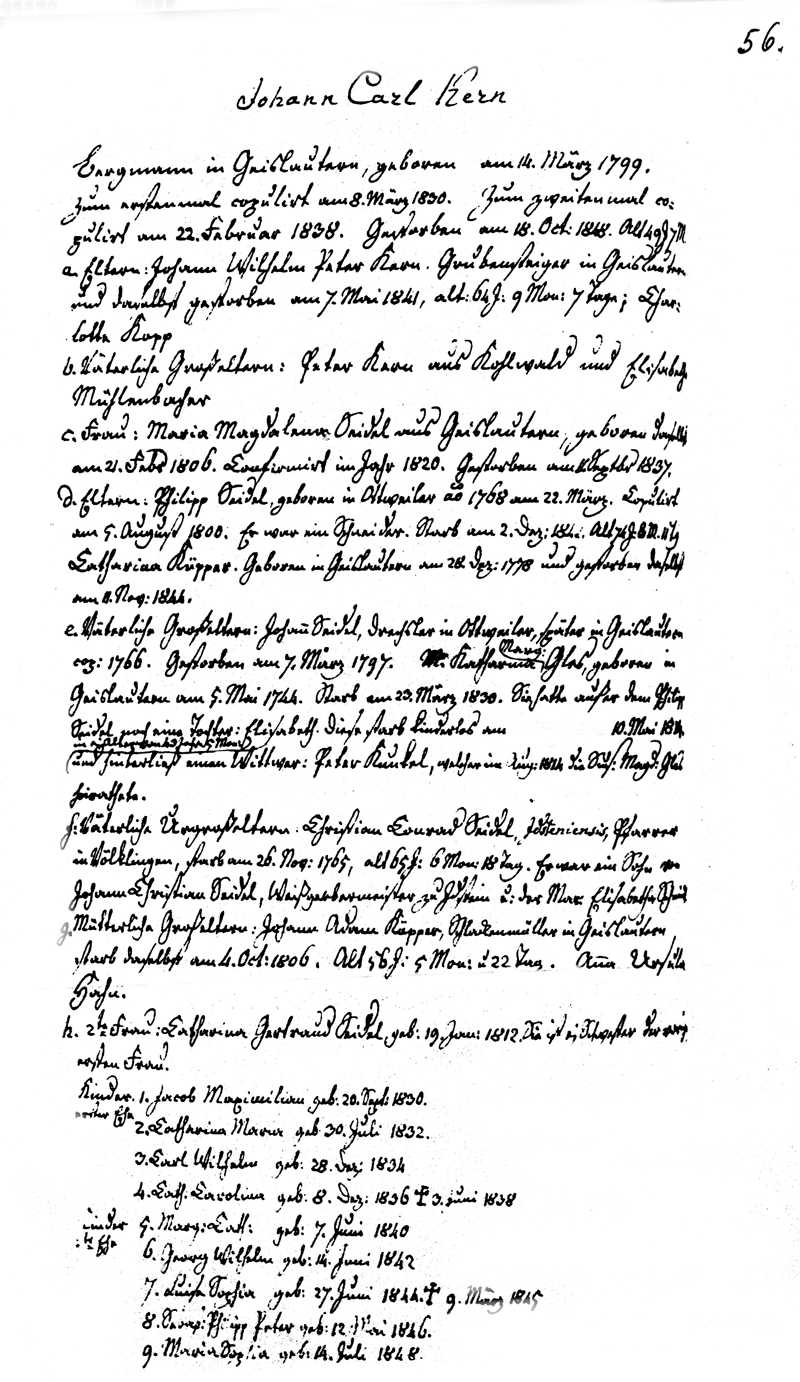 56.
Johann Carl Kern
Bergmann in Geislautern, geboren am 14. März 1799.
Zum erstenmal copulirt am 8. März 1830. Zum zweitenmal co-
pulirt am 22. Februar 1838. Gestorben am 18. Oct: 1848. Alt 49 J 7 M
a. Eltern: Johann Wilhelm Peter Kern. Grubensteiger in Geislautern
und daselbst gestorben am 7. Mai 1841, alt: 64 J: 9 Mon: 7 Tage; Char-
lotte Kopp
b. Väterliche Großeltern: Peter Kern aus Kohlwald und Elisabeth
Mühlenbacher
c. Frau: Maria Magdalena Seidel aus Geislautern, geboren daselbst
am 21. Febr 1806. Confirmirt im Jahr 1820. Gestorben am Septbr 1837.
d. Eltern: Philipp Seidel, geboren in Ottweiler ao 1768 am 22. März. Copulirt
am 5. August 1800. Er war ein Schneider. Starb am 2. Dez: Alt
Catharina Küpper. Geboren in Geislautern am 28. Dez: 1778 und gestorben daselbst
am 11. Nov: 1844.
e. Väterliche Großeltern: Johann Seidel, Drechsler in Ottweiler, später in Geislautern
cop: 1766. Gestorben am 7. März 1797. Marg: Katharina Glas, geboren in
Geislautern am 5. Mai 1744. Starb am 23. März 1830. Sie hatte außer dem Philip
Seidel noch eine Tochter: Elisabeth. Diese starb kinderlos am 10. Mai
in Alter von
(und hinterließ einen Wittwer: Peter Kunkel, welcher im Aug: die Magd: Glas
heirathete.
f. Väterliche Urgroßeltern. Christian Conrad Seidel, Idsteniensis, Pfarrer
in Völklingen, starb am 26. Nov: 1765, alt 65 J: 6 Mon: 18 Tag. Er war ein Sohn von
Johann Christian Seidel, Weißgerbermeister zu Idstein u: der Mar: Elisabetha
g. Mütterliche Großeltern: Johann Adam Küpper, Schlackenmüller in Geislautern,
starb daselbst am 4. Oct: 1806. Alt 56 J: 5 Mon: u 22 Tag. Anna Ursula
Hahn.
h. 2te Frau: Catharina Gertraud Seidel, geb: 19. Jan: 1812. Sie ist Schwester der
ersten Frau.
Kinder 1. Jacob Maximilian geb: 20. Sept: 1830.
erster Ehe
2. Catharina Maria geb: 30. Juli 1832.
3. Carl Wilhelm geb: 28. Dez: 1834
4. Cath: Carolina geb: 8. Dez: 1836 ✝ 3. Juni 1838
Kinder 5. Marg: Cath: geb: 7. Juni 1840
2te Ehe
6. Georg Wilhelm geb: 14. Juni 1842
7. Luise Sophia geb: 27. Juni 1844. ✝ 9. März 1845
8. Philipp Peter geb: 12. Mai 1846.
9. Maria Sophia geb: 14. Juli 1848.